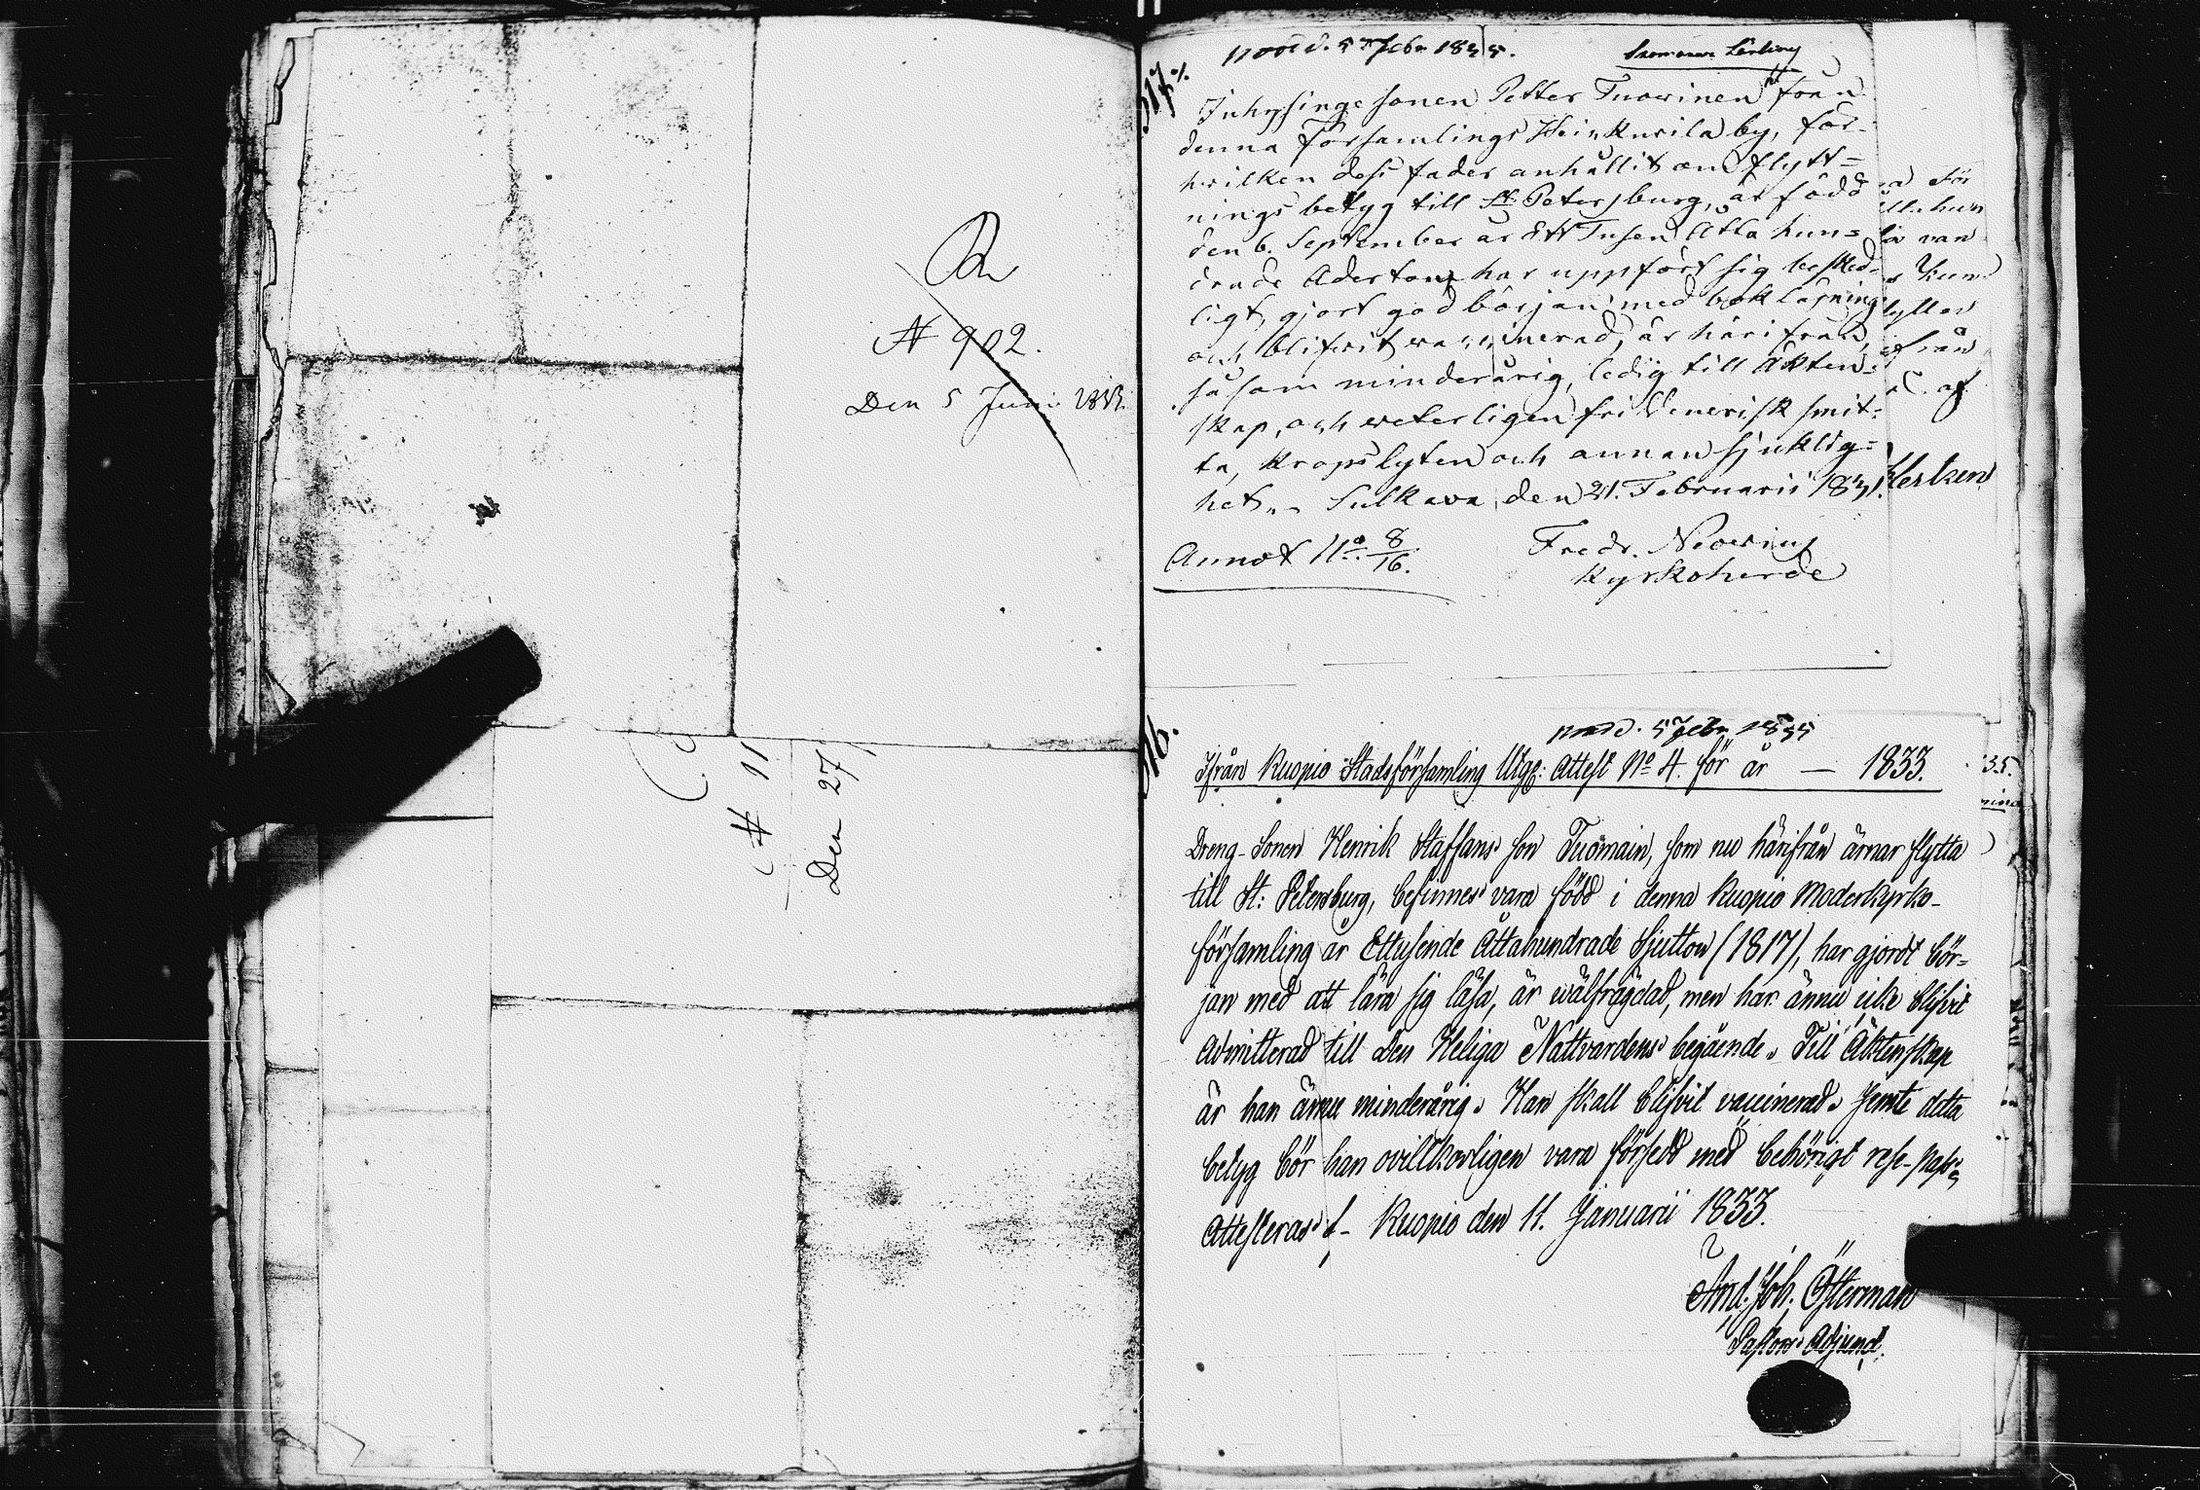 N 902.
Den 5 Juni
# 11
Den 27
517
Febr 1835.
Inhysinge sonen Petter Tuovinen från
denna Församlings Heinkurila by, för
hvilken dess fader anhållit om flytt=
nings betyg till St Petersburg, är född
den 6. September år Ett Tusen Åtta hun=
drade Aderton, har uppfört sig besked-
ligt, gjort god början med bok läsning
och blifvit vaccinerad, är härifrån,
såsom minderårig, ledig till Äkten=
skap, och veterligen fri Venerisk smit=
ta, kropslyten och annan sjuklig=
het. Sulkava, den 21. Februarii
Annot No 8/16.
Fredr. Neovius
Kyrkoherde
516.
5 Febr 1835
Ifrån Kuopio Stadsförsamling Utgg: Attest No 4. för år — 1833.
Dreng-Sonen Henrik Staffans son Tuomain, som nu härifrån ärnar flytta
till St: Petersburg, befinnes vara född i denna Kuopio Moderkyrko-
församling år Ettusende Åttahundrade Sjutton (1817), har gjordt bör=
jan med att lära sig läsa, är wälfrägdad, men har ännu icke blifvit
Admitterad till Den Heliga Nattvardens begående. Till Äktenskap
är han ännu minderårig. Han skall blifvit vaccinerad. Jemte detta
betyg bör han ovillkorligen vara försedd med behörigt rese-pass.
Attesteras Kuopio den 11. Januarii 1833.
And. Joh. Österman
Pastors Adjunct.